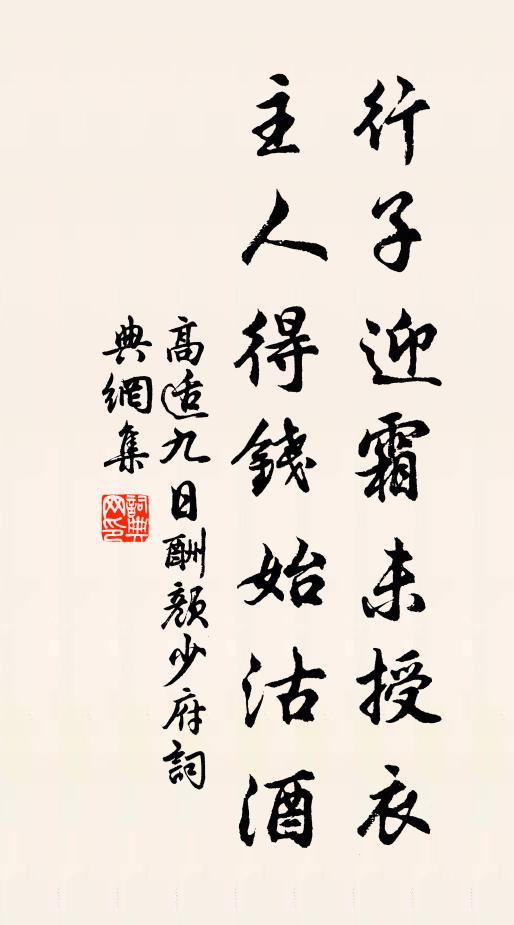 行子迎霜未授衣
主人得錢始沽酒
高适九日酬顏少府詞
典網集
詞典网印